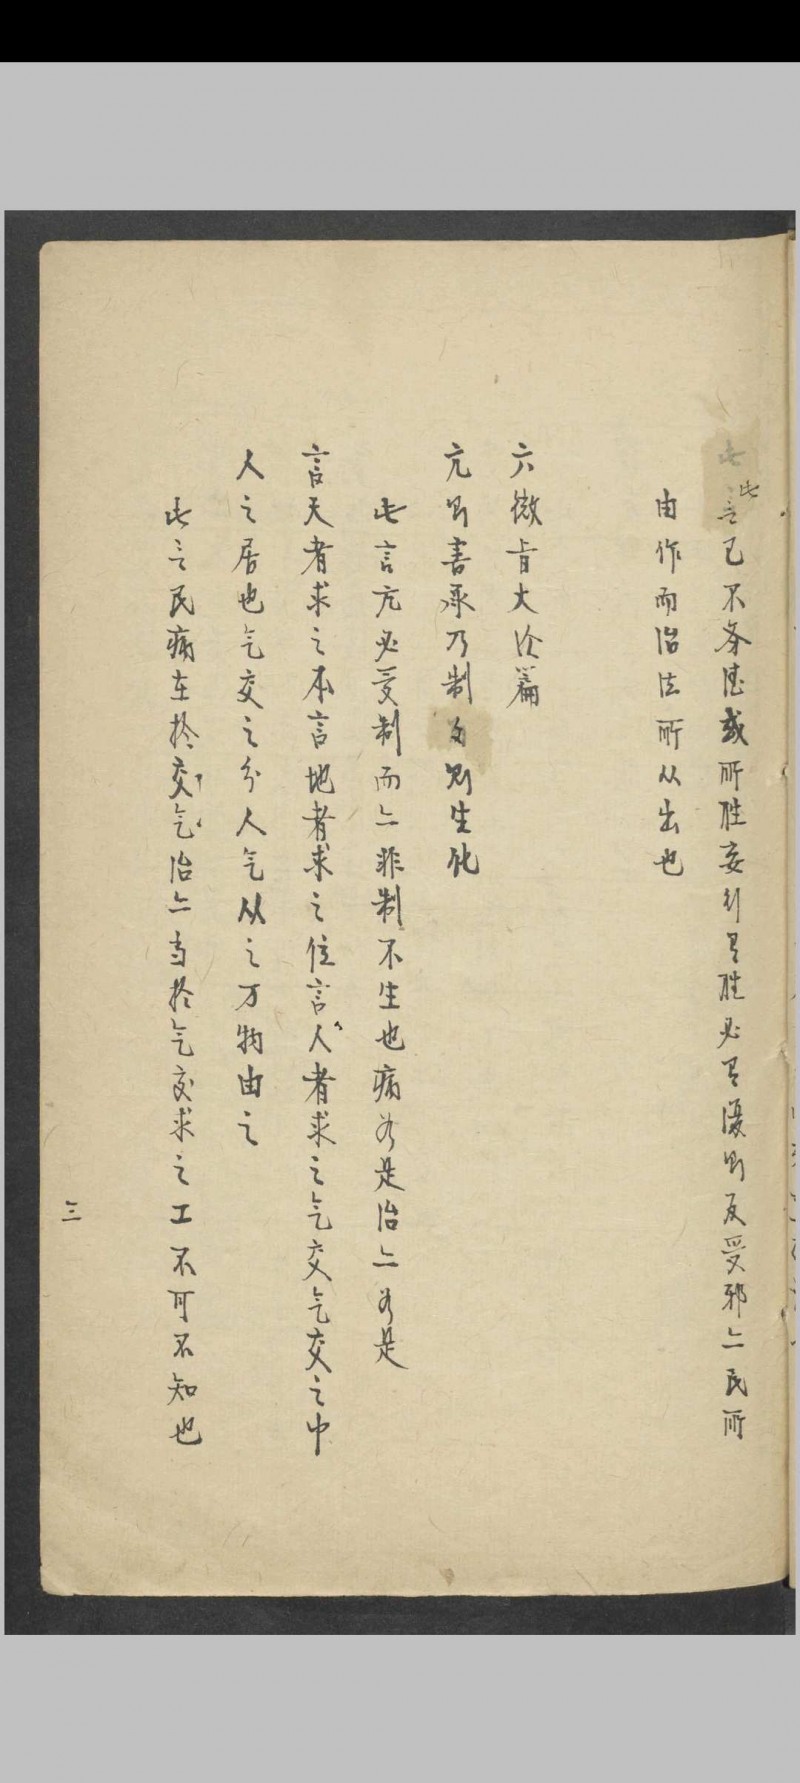 此言己不务德或所胜妄行有胜必有復则反受邪亦民所
由作而治法所从出也
六微旨大论篇
亢则害承乃制则生化
此言亢必受制而亦非制不生也病若是治亦若是
言天者求之本言地者求之位言人者求之气交气交之中
人之居也气交之分人气从之万物由之
此言民病在扵交气治亦当扵气交求之工不可不知也
三